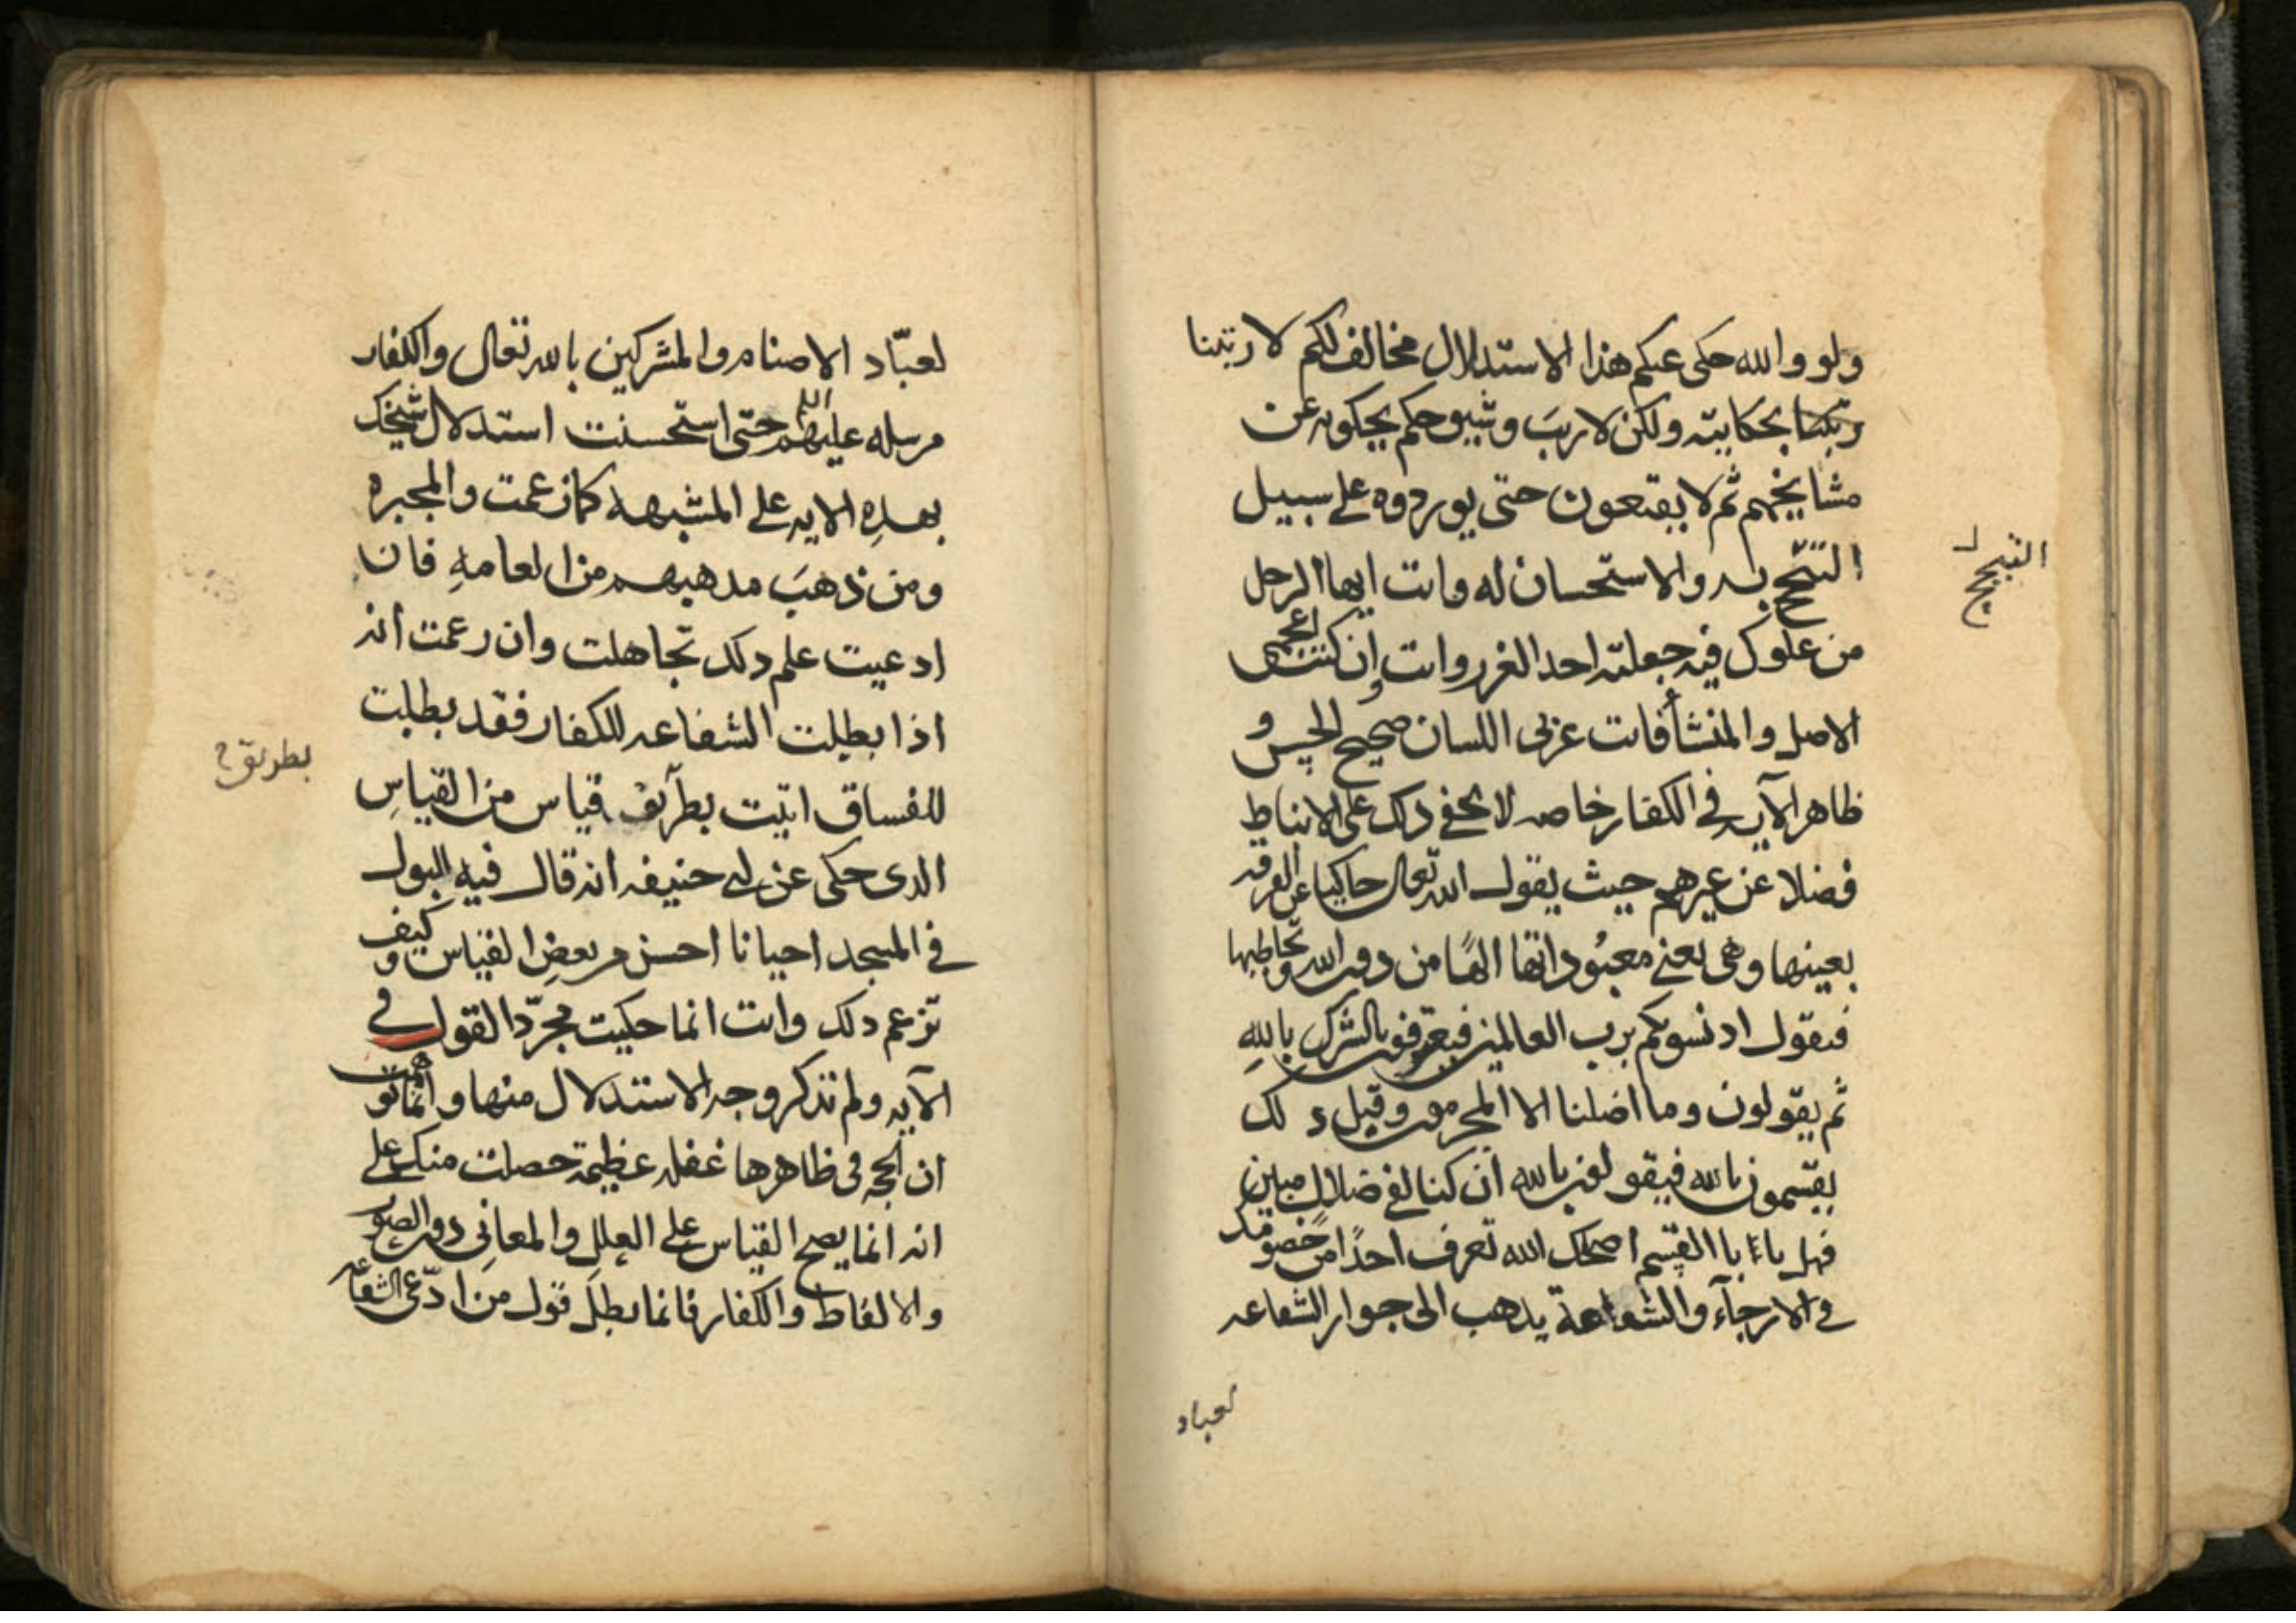 ولو والله حكى عنكم هذا الاستدلال مخالف لكم لارتبنا
بحكايته ولكن لا ريب وشيوخكم يحكونه عن
مشايخهم ثم لا يقنعون حتى يوردوه على سبيل
التبجح به والاستحسان له وانت ايها الرجل
من غلوك فيه جعلته احد الغرر وانت ان كنت اعجمي
الاصل والمنشأ فانت عربي اللسان صحيح الحس و
ظاهر الآيه في الكفار خاصه لا يخفى ذلك على الانباط
فضلا عن غيرهم حيث يقول الله تعالى حاكيا عن الفرقه
بعينها وهى يعنى معبوداتها الهًا من دون الله وتخاطبها
فيقول اذ نسويكم برب العالمين فيعترفون بالشرك بالله
ثم يقولون وما اضلنا الا المجرمون وقبل ذ لك
يقسمون بالله فيقولون بالله ان كنا لفي ضلال مبين
فهل يا ابا القسم اصحك الله تعرف احدًا من خصومك
في الارجآء والشفاعة يذهب الى جواز الشفاعه
التبجح
لعباد
لعبّاد الاصنام والمشركين بالله تعالى والكفار
برسله عليهم حتى استحسنت استدلال شيخك
بهذِه الايه على المشبهه كما زعمت والمجبره
ومن ذهبَ مذهبهم من العامهِ فان
ادعيت علم ذلك تجاهلت وان زعمت أنه
اذا بطلت الشفاعه للكفار فقد بطلت
للفساق اتيت بطرآيق قياس من القياسِ
الذى حكى عن ابي حنيفه انه قال فيه البول
في المسجد احيانا احسن من بعضِ القياس وكيف
تزعم ذلك وانت انما حكيت مجرّد القول في
الآيه ولم تذكر وجه الاستدلال منها وانما توهمت
ان الحجه في ظاهرها غفله عظيمة حصلت منك على
انه انما يصح القياس على العلل والمعاني دون الصور
والالفاظ والكفار فانما بطلَ قول من ادّعى الشفاعه
بطريق